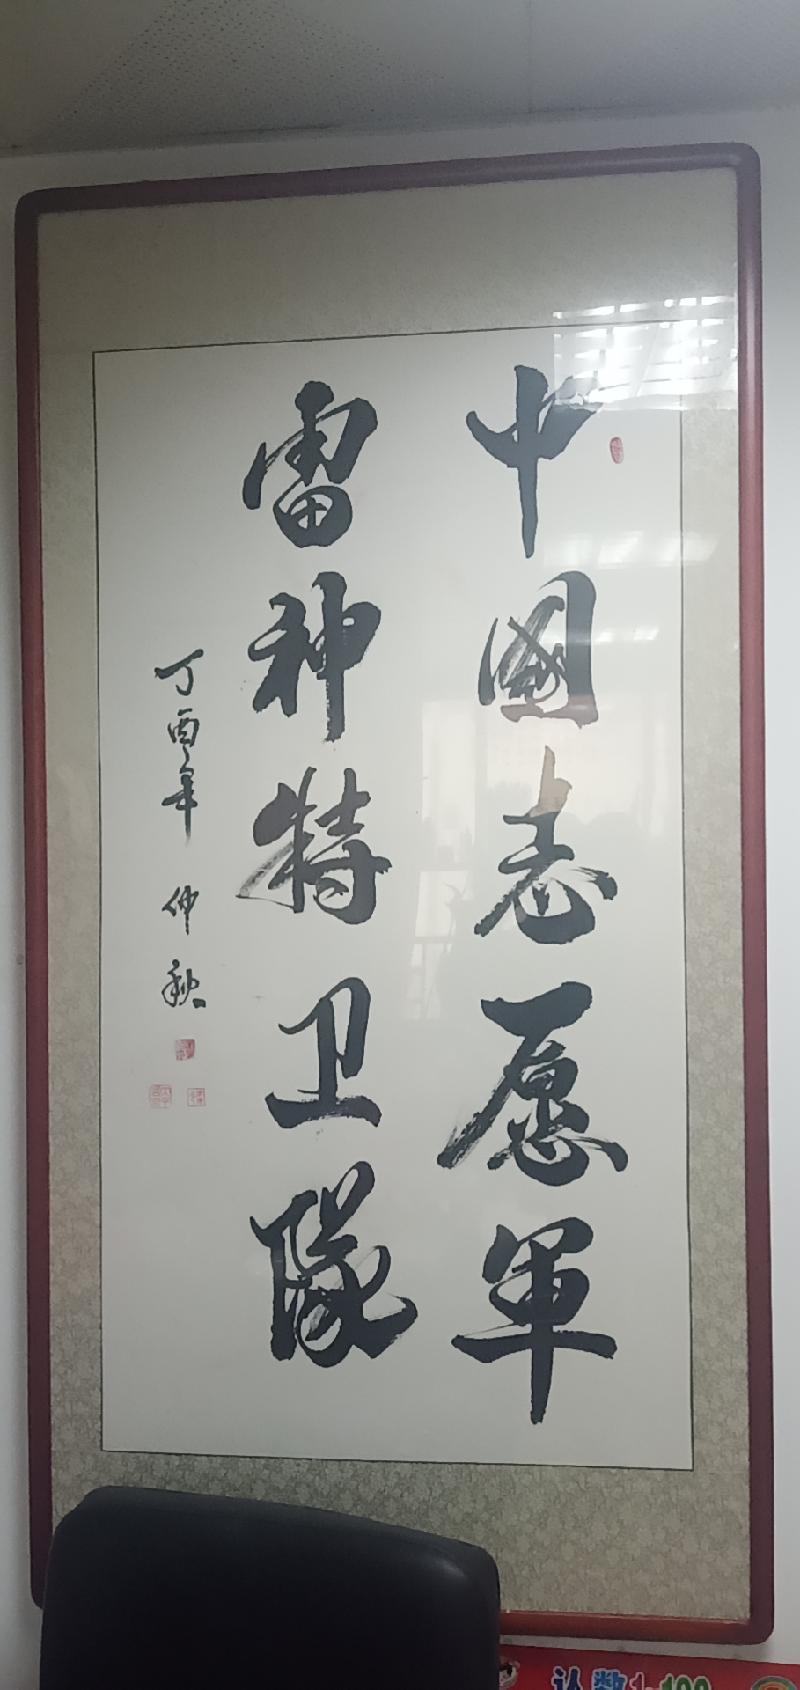 中國志愿軍
雷神特卫隊
丁酉年 仲秋
认数1-100